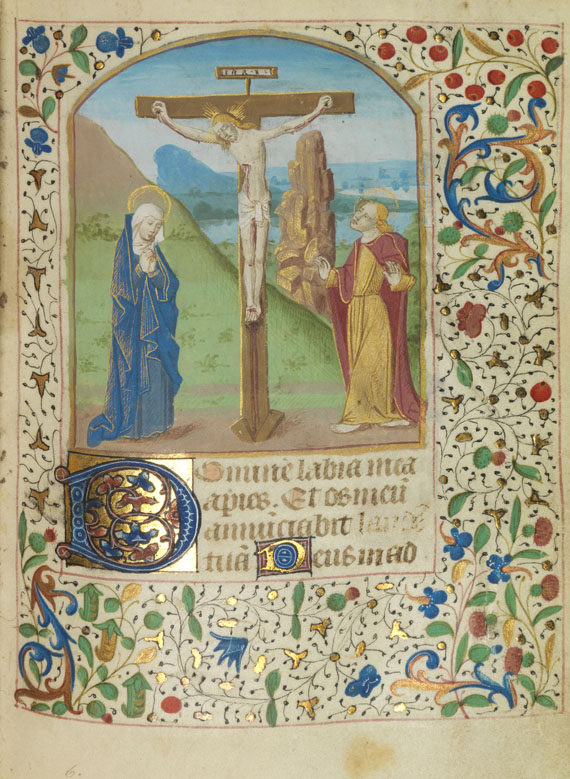 INRI
Domine labia mea
apies. Et os meū
annūciabit laudē
tuā Deus in ad